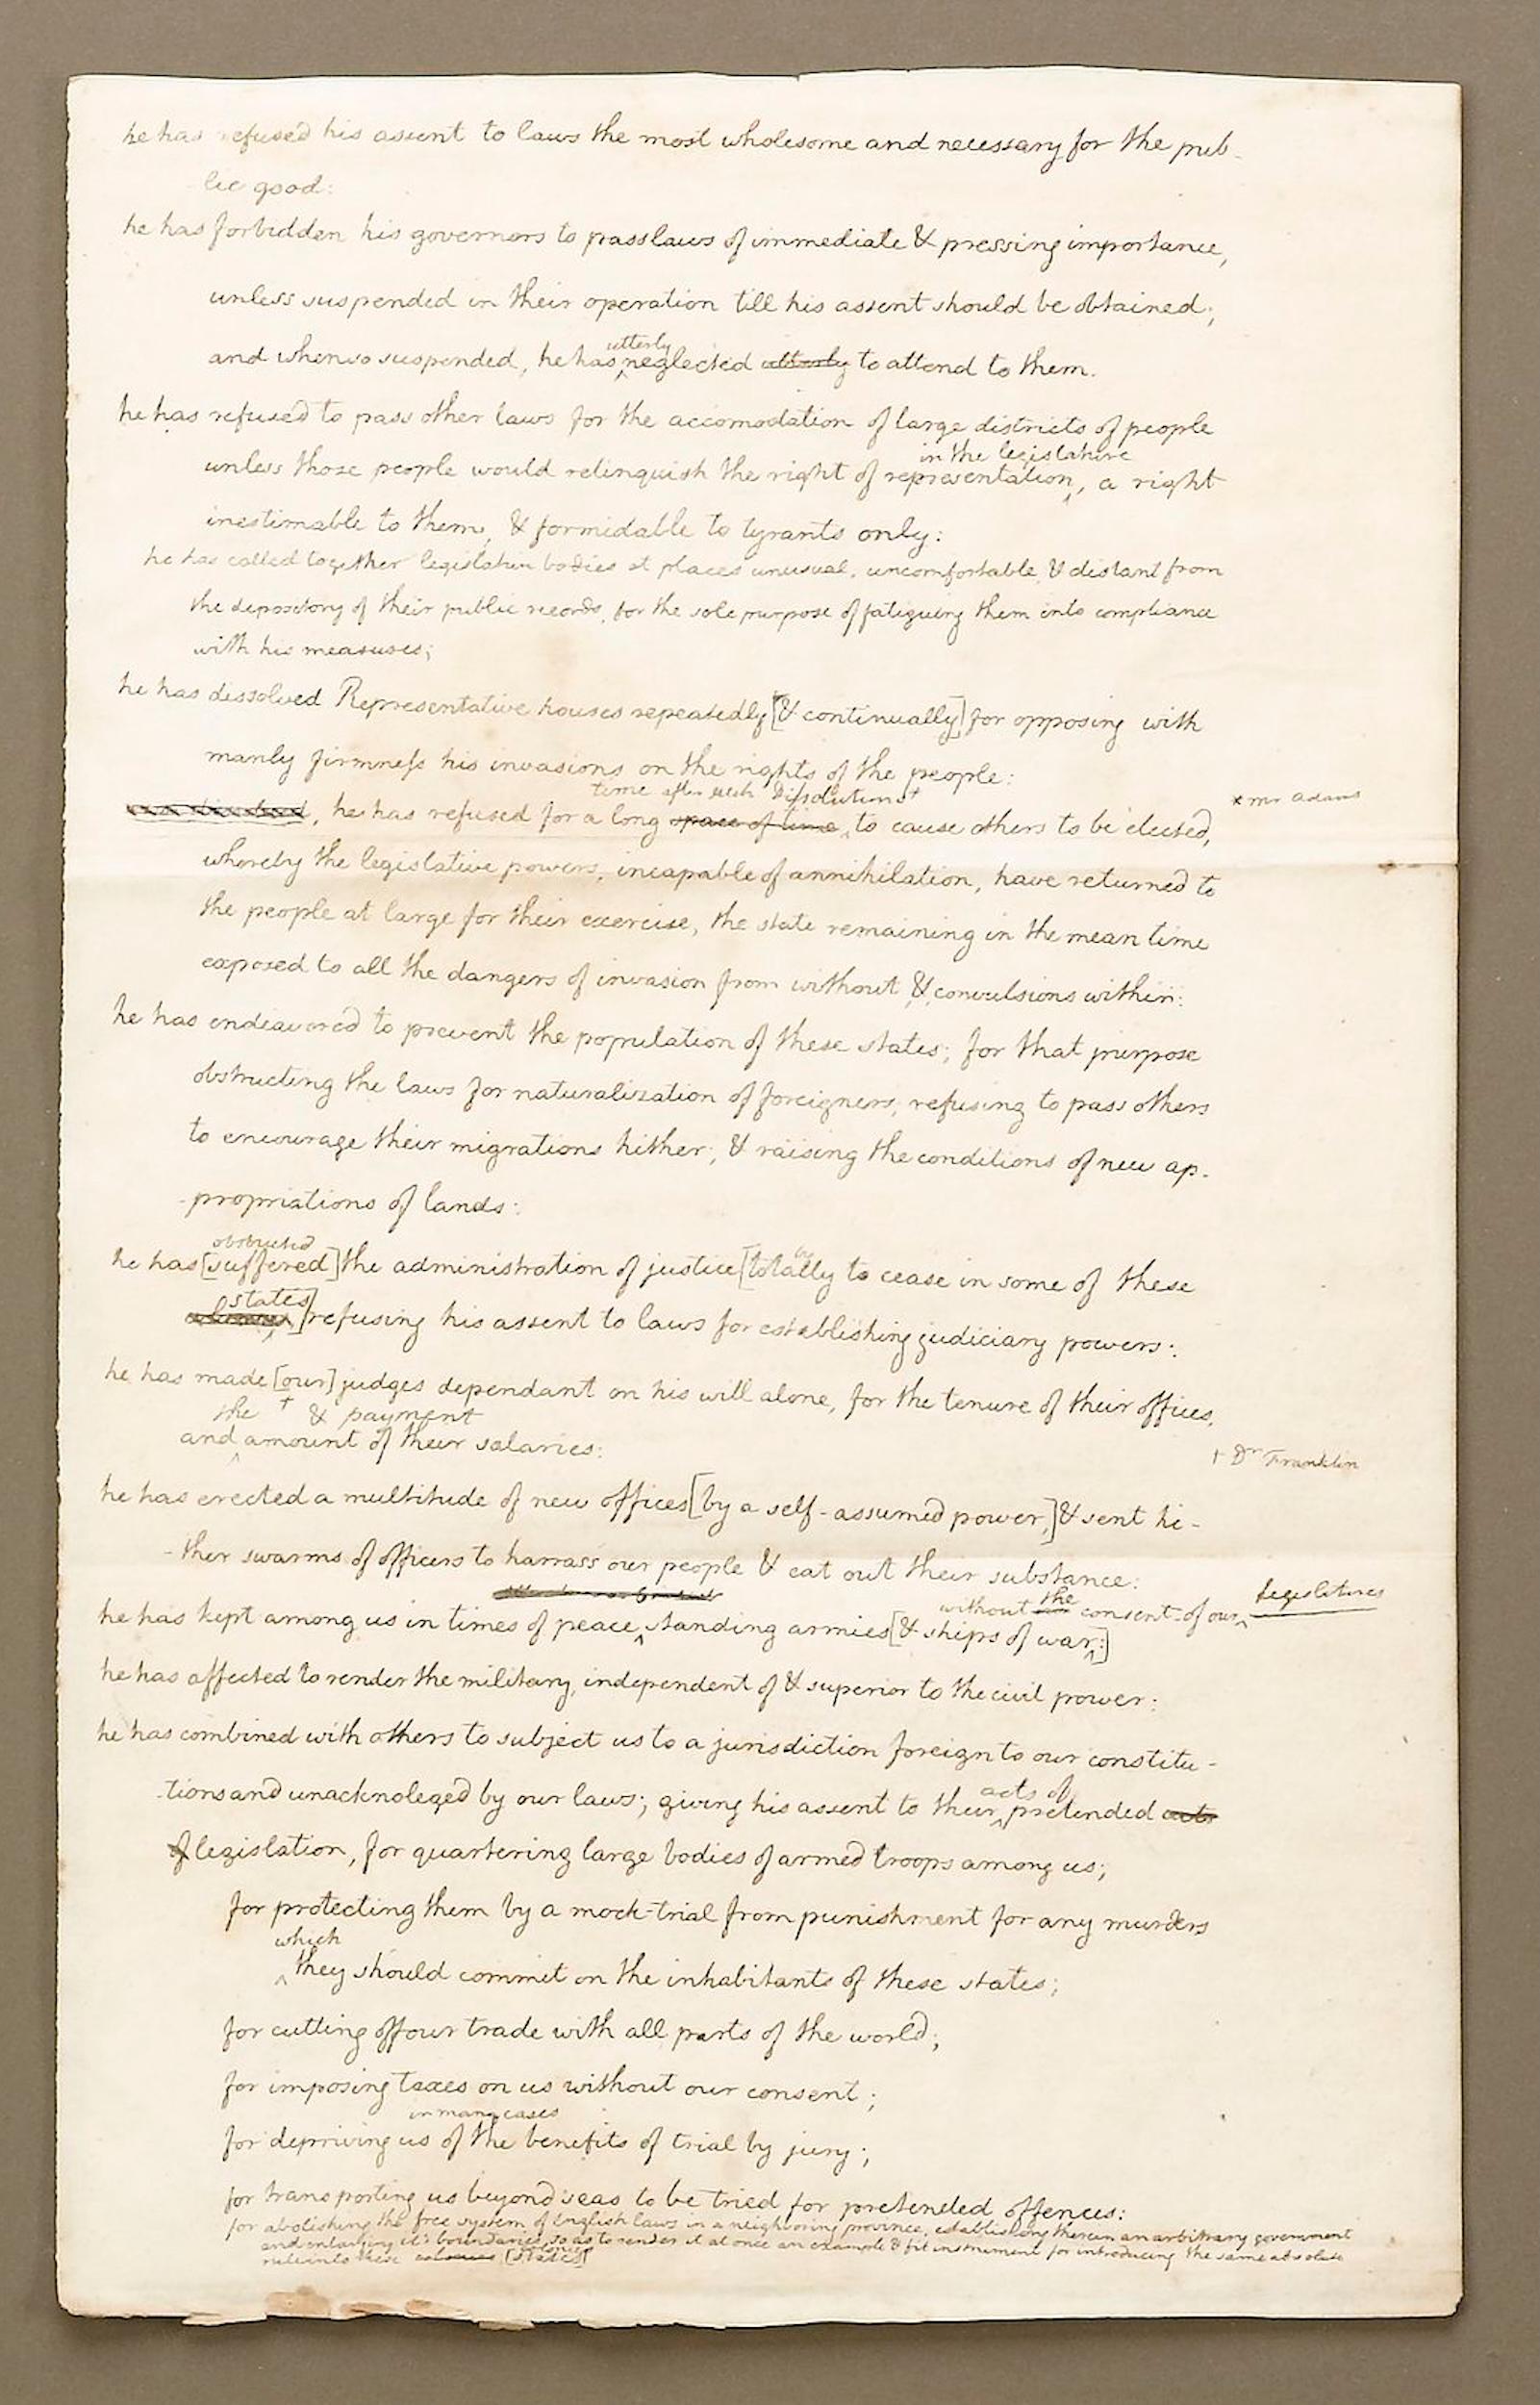 he has refused his assent to laws the most wholesome and necessary for the pub-
lic good:
he has forbidden his governors to pass laws of immediate & pressing importance,
unless suspended in their operation till his assent should be obtained;
utterly
and when so suspended, he has ^ neglected utterly to attend to them.
he has refused to pass other laws for the accomodation of large districts of people
in the legislature
unless those people would relinquish the right of representation ^, a right
inestimable to them, & formidable to tyrants only:
he has called together legislative bodies at places unusual, uncomfortable, & distant from
the depository of their public records, for the sole purpose of fatiguing them into compliance
with his measures;
he has dissolved Representative houses repeatedly [& continually] for opposing with
manly firmness his invasions on the rights of the people:
time after such Dissolutions + * mr Adams
, he has refused for a long space of time ^ to cause others to be elected,
whereby the legislative powers, incapable of annihilation, have returned to
the people at large for their exercise, the state remaining in the mean time
exposed to all the dangers of invasion from without & convulsions within:
he has endeavored to prevent the population of these states; for that purpose
obstructing the laws for naturalization of foreigners; refusing to pass others
to encourage their migrations hither; & raising the conditions of new ap-
-propriations of lands:
obstructed by
he has [suffered] the administration of justice [totally to cease in some of these
states]
refusing his assent to laws for establishing judiciary powers:
he has made [our] judges dependant on his will alone, for the tenure of their offices,
the + & payment
and ^ amount of their salaries: + Dr Franklin
he has erected a multitude of new offices [by a self-assumed power,] & sent hi-
-ther swarms of officers to harrass our people & eat out their substance:
without the consent of our ^ legislatures
he has kept among us in times of peace ^ standing armies [& ships of war ^:]
he has affected to render the military, independent of & superior to the civil power:
he has combined with others to subject us to a jurisdiction foreign to our constitu-
-tions and unacknoleged by our laws; giving his assent to their ^ pretended acts
acts of
of legislation, for quartering large bodies of armed troops among us;
for protecting them by a mock-trial from punishment for any murders
which
^ they should commit on the inhabitants of these states;
for cutting off our trade with all parts of the world;
for imposing taxes on us without our consent;
in many cases
for depriving us of the benefits of trial by jury;
for transporting us beyond seas to be tried for pretended offences:
for abolishing the free system of English laws in a neighboring province, establishing therein an arbitrary government
and enlarging it's boundaries, so as to render it at once an example & fit instrument for introducing the same absolute
colonies
rule into these colonies [states]